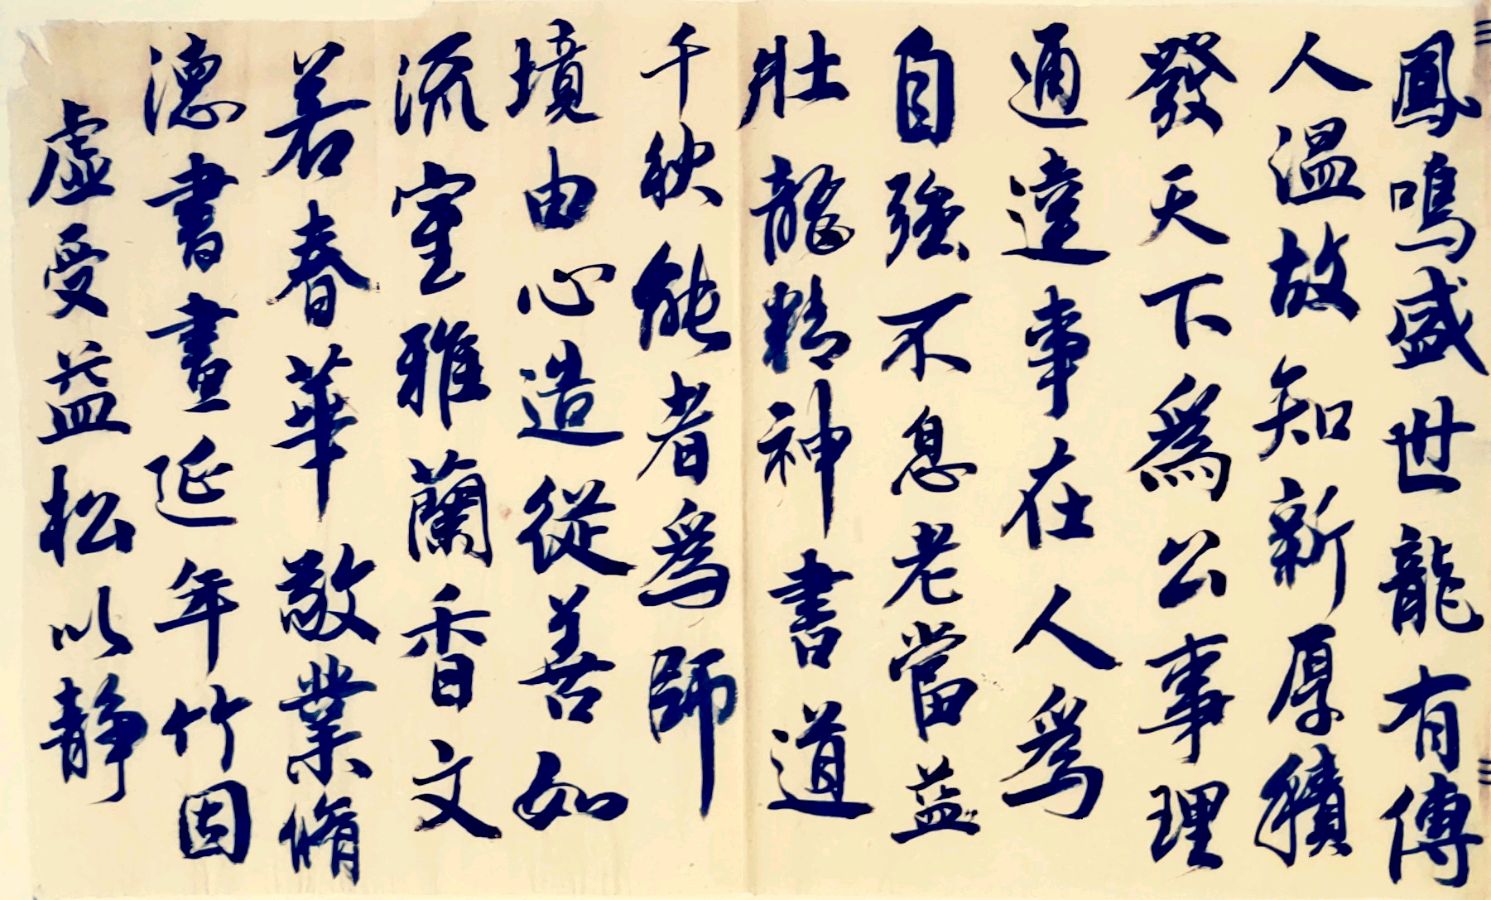 鳳鳴盛世龍有傳
人溫故知新厚積
發天下為公事理
通達事在人為
自強不息老當益
壯龍精神書道
千秋能者為師
境由心造從善如
流室雅蘭香文
若春華敬業脩
德書畫延年竹因
虛受益松以靜